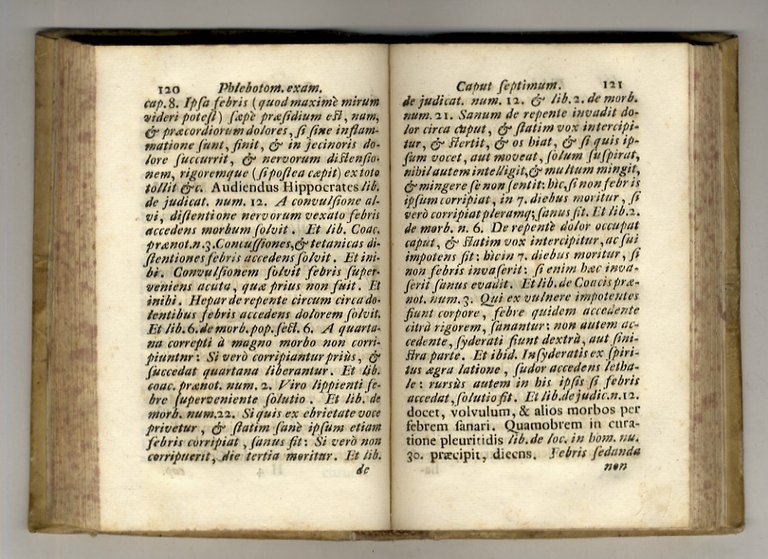 120 Phlebotom. exam.
cap. 8. Ipſa febris (quod maximè mirum
videri poteſt) ſæpè præſidium eſt, nam,
& præcordiorum dolores, ſi ſine inflam-
matione ſunt, finit, & in jecinoris do-
lore ſuccurrit, & nervorum diſtenſio-
nem, rigoremque (ſi poſtea cæpit) ex toto
tollit &c. Audiendus Hippocrates lib.
de judicat. num. 12. A convulſione al-
vi, diſtentione nervorum vexato febris
accedens morbum ſolvit. Et lib. Coac.
prænot.n.3. Concuſſiones,& tetanicas di-
ſtentiones febris accedens ſolvit. Et ini-
bi. Convulſionem ſolvit febris ſuper-
veniens acuta, quæ prius non fuit. Et
inibi. Hepar de repente circum circa do-
lentibus febris accedens dolorem ſolvit.
Et lib. 6. de morb. pop. ſect. 6. A quarta-
na correpti à magno morbo non corri-
piuntnr: Si verò corripiantur priùs, &
ſuccedat quartana liberantur. Et lib.
coac. prænot. num. 2. Viro lippienti fe-
bre ſuperveniente ſolutio. Et lib. de
morb. num.22. Si quis ex ebrietate voce
privetur, & ſtatim ſanè ipſum etiam
febris corripiat, ſanus fit: Si verò non
corripuerit, die tertia moritur. Et lib.
de
Caput ſeptimum. 121
de judicat. num. 12. & lib. 2. de morb.
num. 21. Sanum de repente invadit do-
lor circa caput, & ſtatim vox intercipi-
tur, & ſtertit, & os hiat, & ſi quis ip-
ſum vocet, aut moveat, ſolum ſuſpirat,
nihil autem intelligit, & multum mingit,
& mingere ſe non ſentit: hic, ſi non febris
ipſum corripiat, in 7. diebus moritur, ſi
verò corripiat pleramq; ſanus fit. Et lib.2.
de morb. n. 6. De repentè dolor occupat
caput, & ſtatim vox intercipitur, ac ſui
impotens fit: hic in 7. diebus moritur, ſi
non febris invaſerit: ſi enim hæc inva-
ſerit ſanus evadit. Et lib. de Coacis præ-
not. num. 3. Qui ex vulnere impotentes
fiunt corpore, febre quidem accedente
citrà rigorem, ſanantur: non autem ac-
cedente, ſyderati fiunt dextrà, aut ſini-
ſtra parte. Et ibid. In ſyderatis ex ſpiri-
tus ægra latione, ſudor accedens letha-
le: rursùs autem in his ipſis ſi febris
accedat, ſolutio fit. Et lib. de judic.n.12.
docet, volvulum, & alios morbos per
febrem ſanari. Quamobrem in cura-
tione pleuritidis lib. de loc. in hom. nu.
30. præcipit, diecns. Febris ſedanda
non